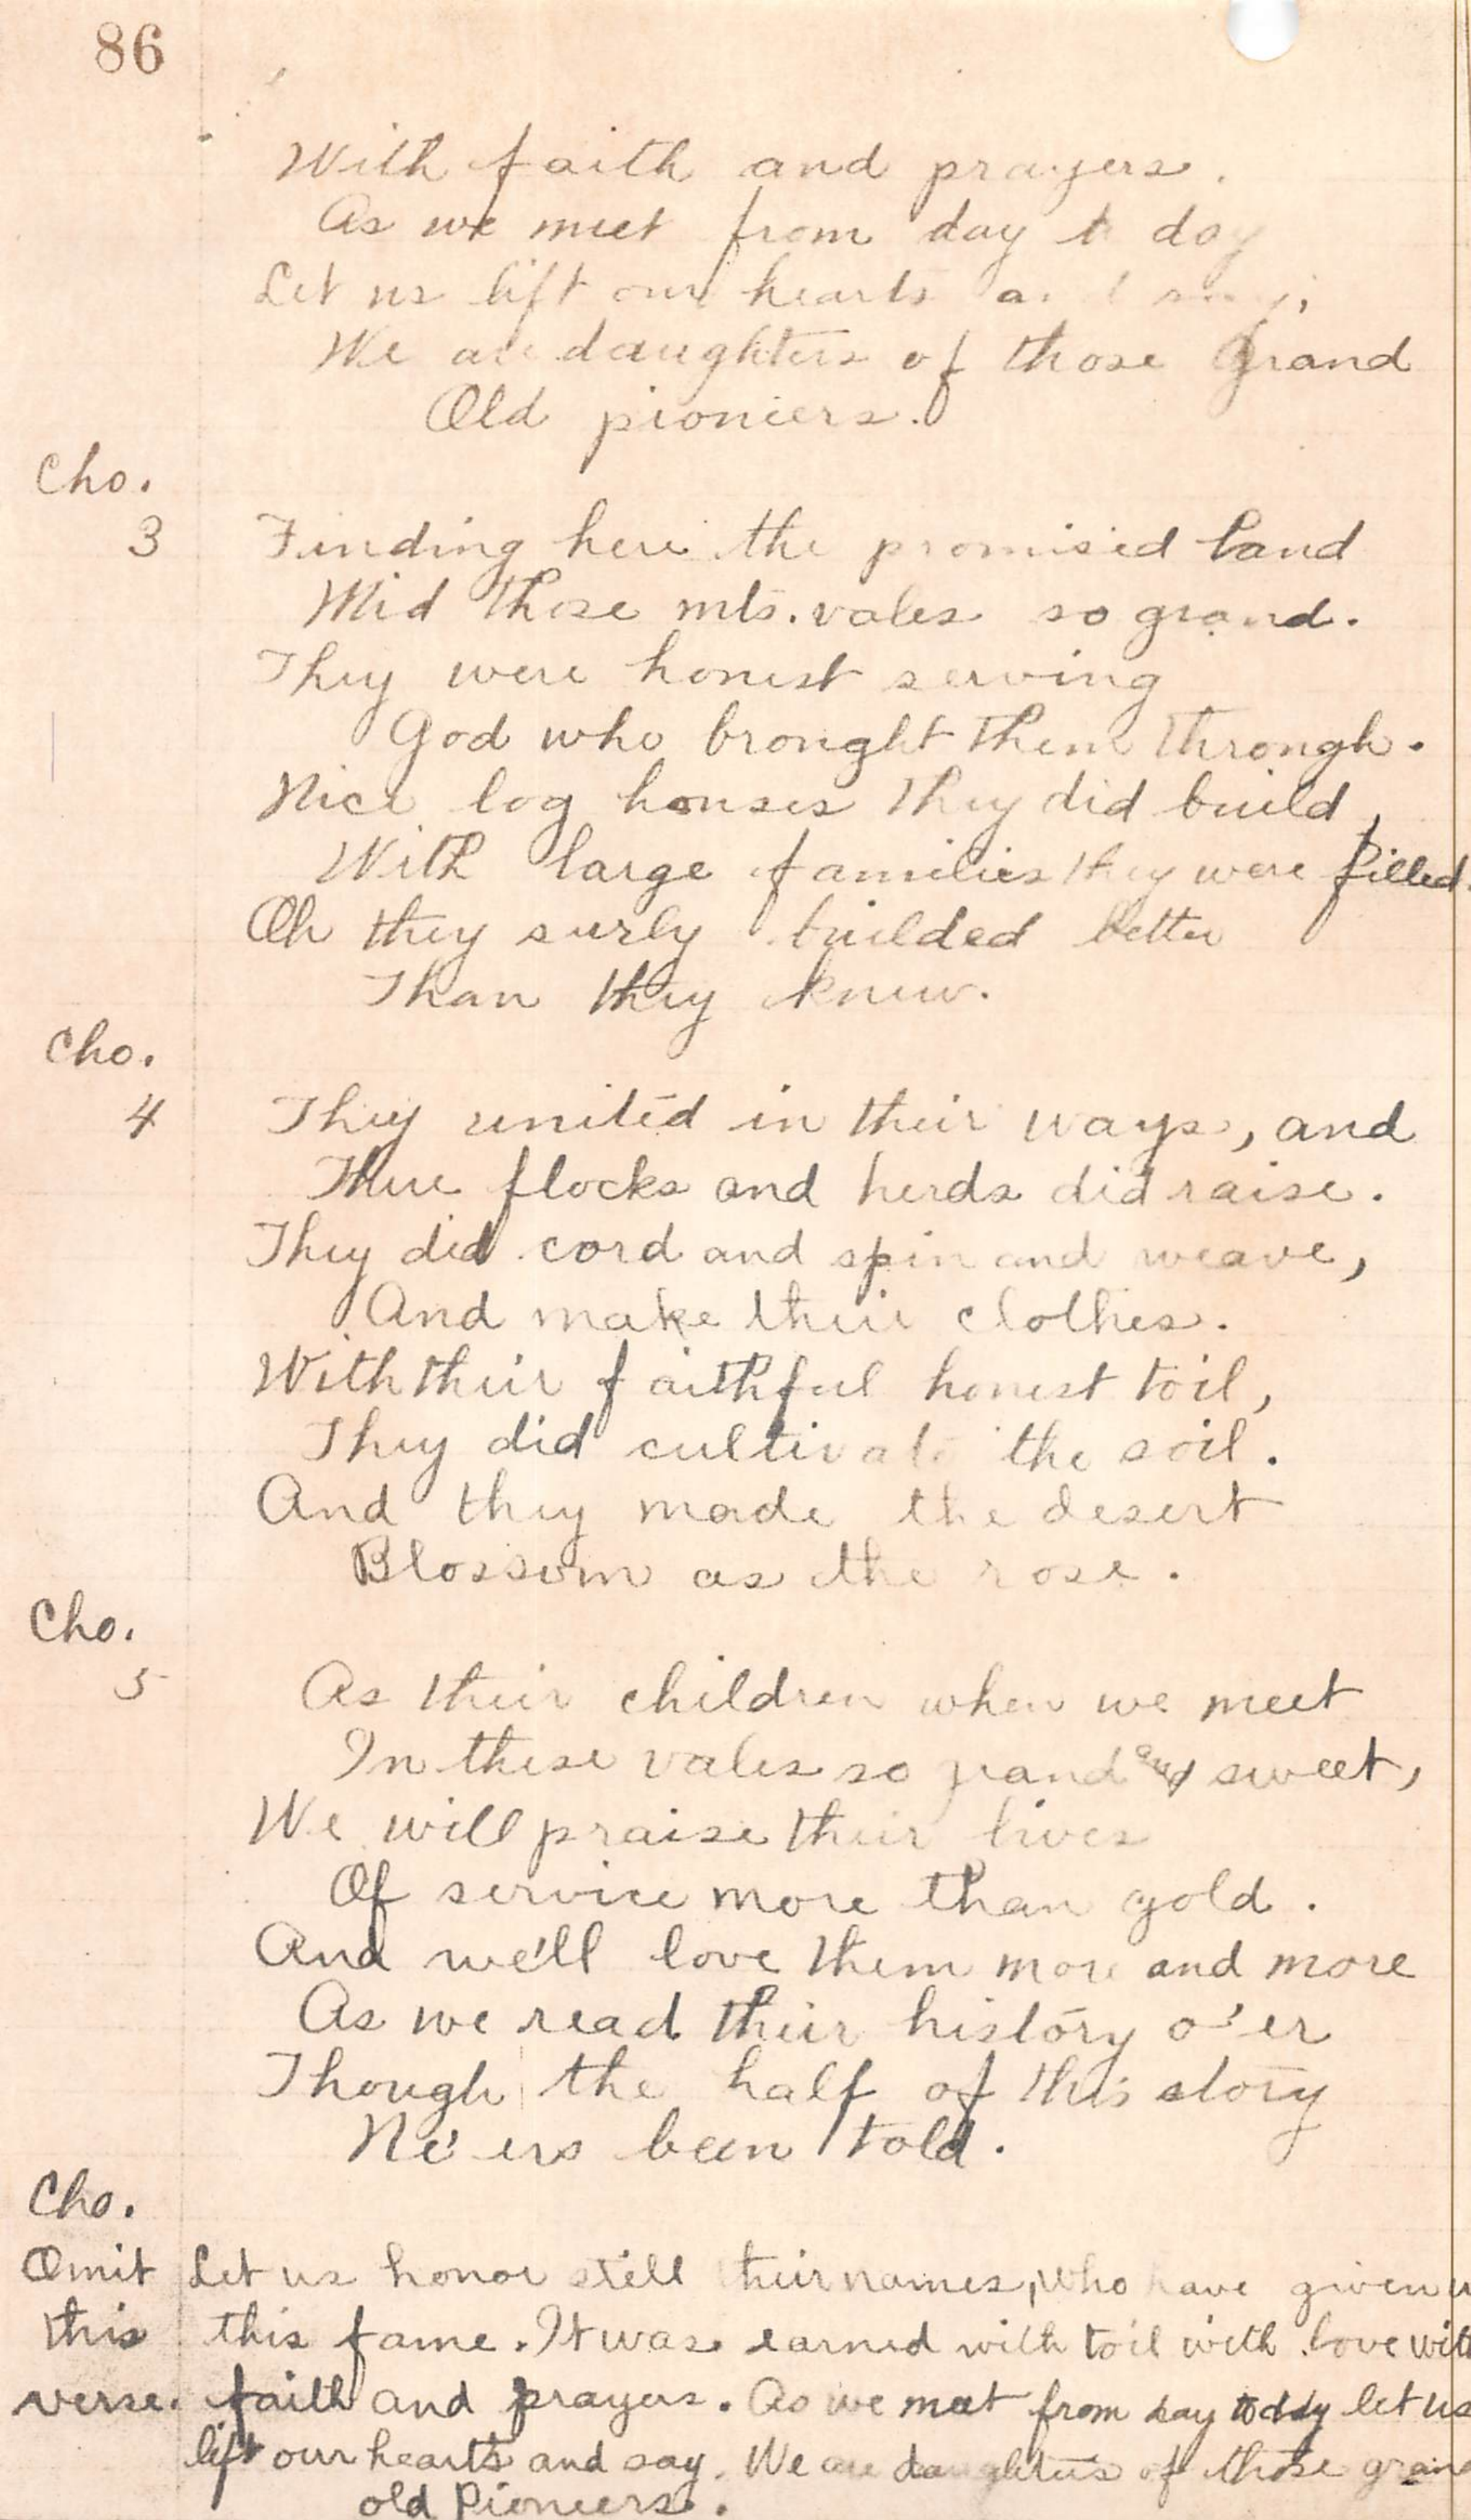 86
With faith and prayers.
As we meet from day to day
Let us lift our hearts and say,
We are daughters of those Grand
Old pioneers.
Cho.
3 Finding here the promised land
Mid those mts. vales so grand.
They were honest serving
God who brought them through.
Nice log houses they did build,
With large families they were filled.
Oh they surly builded better
Than they knew.
Cho.
4 They united in their ways, and
Thire flocks and herds did raise.
They did cord and spin and weave,
And make their clothes.
With their faithful honest toil,
They did cultivate the soil.
And they made the desert
Blossom as the rose.
Cho.
5 As their children when we meet
In these vales so grand and sweet,
We will praise their lives
Of service more than gold.
And we'll love them more and more
As we read their history o'er
Though the half of this story
Ne'ers been told.
Cho.
Omit Let us honor still their names, who have given u
this this fame. It was earned with toil with love with
verse. faith and prayers. As we meet from day to day let us
lift our hearts and say. We are daughters of those grand
old Pioneers.